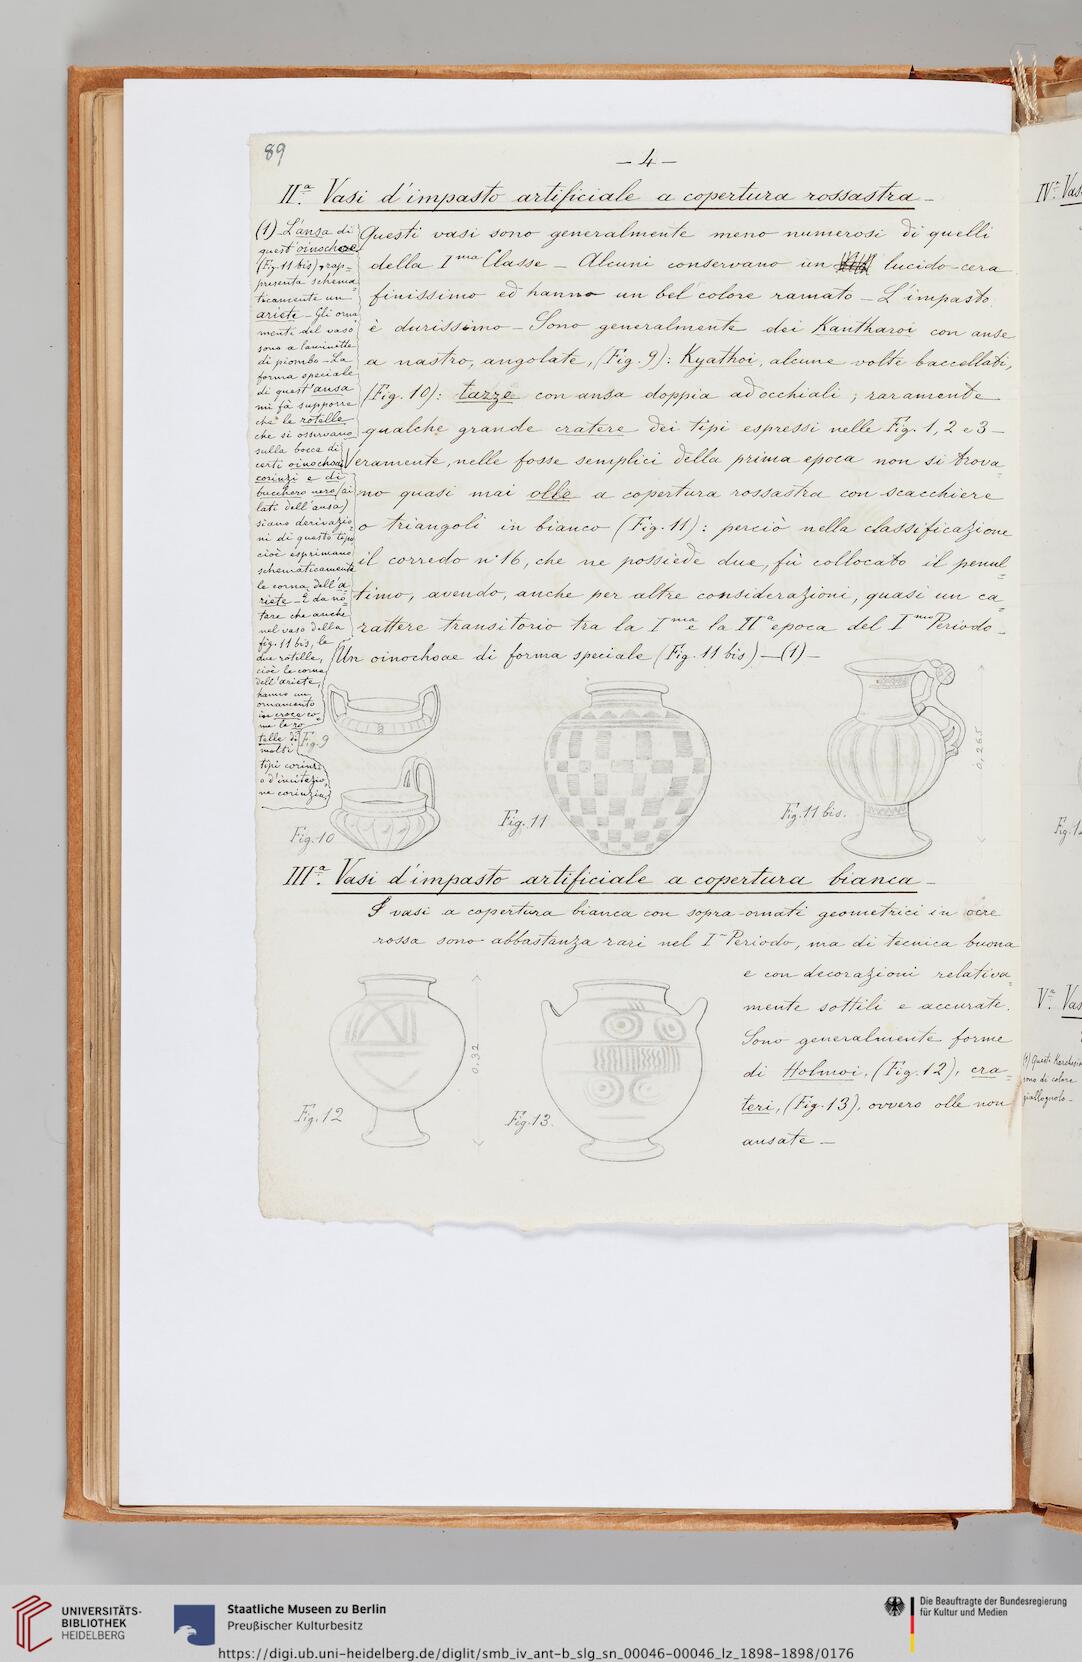 89
– 4 –
IIª. Vasi d'impasto artificiale a copertura rossastra –
Questi vasi sono generalmente meno numerosi di quelli
della Iᵐᵃ Classe – Alcuni conservano un lucido-cera
finissimo ed hanno un bel colore ramato – L'impasto
è durissimo – Sono generalmente dei Kantharoi con anse
a nastro, angolate, (Fig. 9): Kyathoi, alcune volte baccellati,
(Fig. 10): tazze con ansa doppia ad occhiali; raramente
qualche grande cratere dei tipi espressi nelle Fig. 1, 2 e 3 –
Veramente, nelle fosse semplici della prima epoca non si trova=
no quasi mai olle a copertura rossastra con scacchiere
o triangoli in bianco (Fig. 11): perciò nella classificazione
il corredo nº 16, che ne possiede due, fù collocato il penul=
timo, avendo, anche per altre considerazioni, quasi un ca=
rattere transitorio tra la Iᵐᵃ e la IIª epoca del Iᵐᵒ Periodo –
Un oinochoae di forma speciale (Fig. 11 bis) – (1) –
(1) L'ansa di
quest'oinochoe
(Fig. 11 bis), rap=
presenta schema=
ticamente un
ariete – Gli orna
menti del vaso
sono a laminette
di piombo – La
forma speciale
di quest'ansa
mi fà supporre
che le rotelle
che si osservano
sulla bocca di
certi oinochoai
corinzi e di
bucchero nero (ai
lati dell'ansa)
siano derivazio=
ni di questo tipo
cioè esprimano
schematicamente
le corna dell'a=
riete – È da no=
tare che anche
nel vaso della
fig. 11 bis, le
due rotelle,
cioè le corna
dell'ariete,
hanno un
ornamento
in croce co=
me le ro=
telle di
molti
tipi corinzi
o d'imitazio=
ne corinzia
Fig. 9
Fig. 10
Fig. 11
Fig. 11 bis.
0,265
IIIª. Vasi d'impasto artificiale a copertura bianca –
I vasi a copertura bianca con sopra-ornati geometrici in ocre
rossa sono abbastanza rari nel I Periodo, ma di tecnica buona
e con decorazioni relativa=
mente sottili e accurate.
Sono generalmente forme
di Holmoi, (Fig. 12), cra=
teri, (Fig. 13), ovvero olle non
ansate –
Fig. 12
0,32
Fig. 13.
IVª. Vas
Fig. 1
Vª. Vas
(1) Questi
sono di colore
giallognolo –
UNIVERSITÄTS-
BIBLIOTHEK
HEIDELBERG
Staatliche Museen zu Berlin
Preußischer Kulturbesitz
Die Beauftragte der Bundesregierung
für Kultur und Medien
https://digi.ub.uni-heidelberg.de/diglit/smb_iv_ant-b_slg_sn_00046-00046_lz_1898-1898/0176